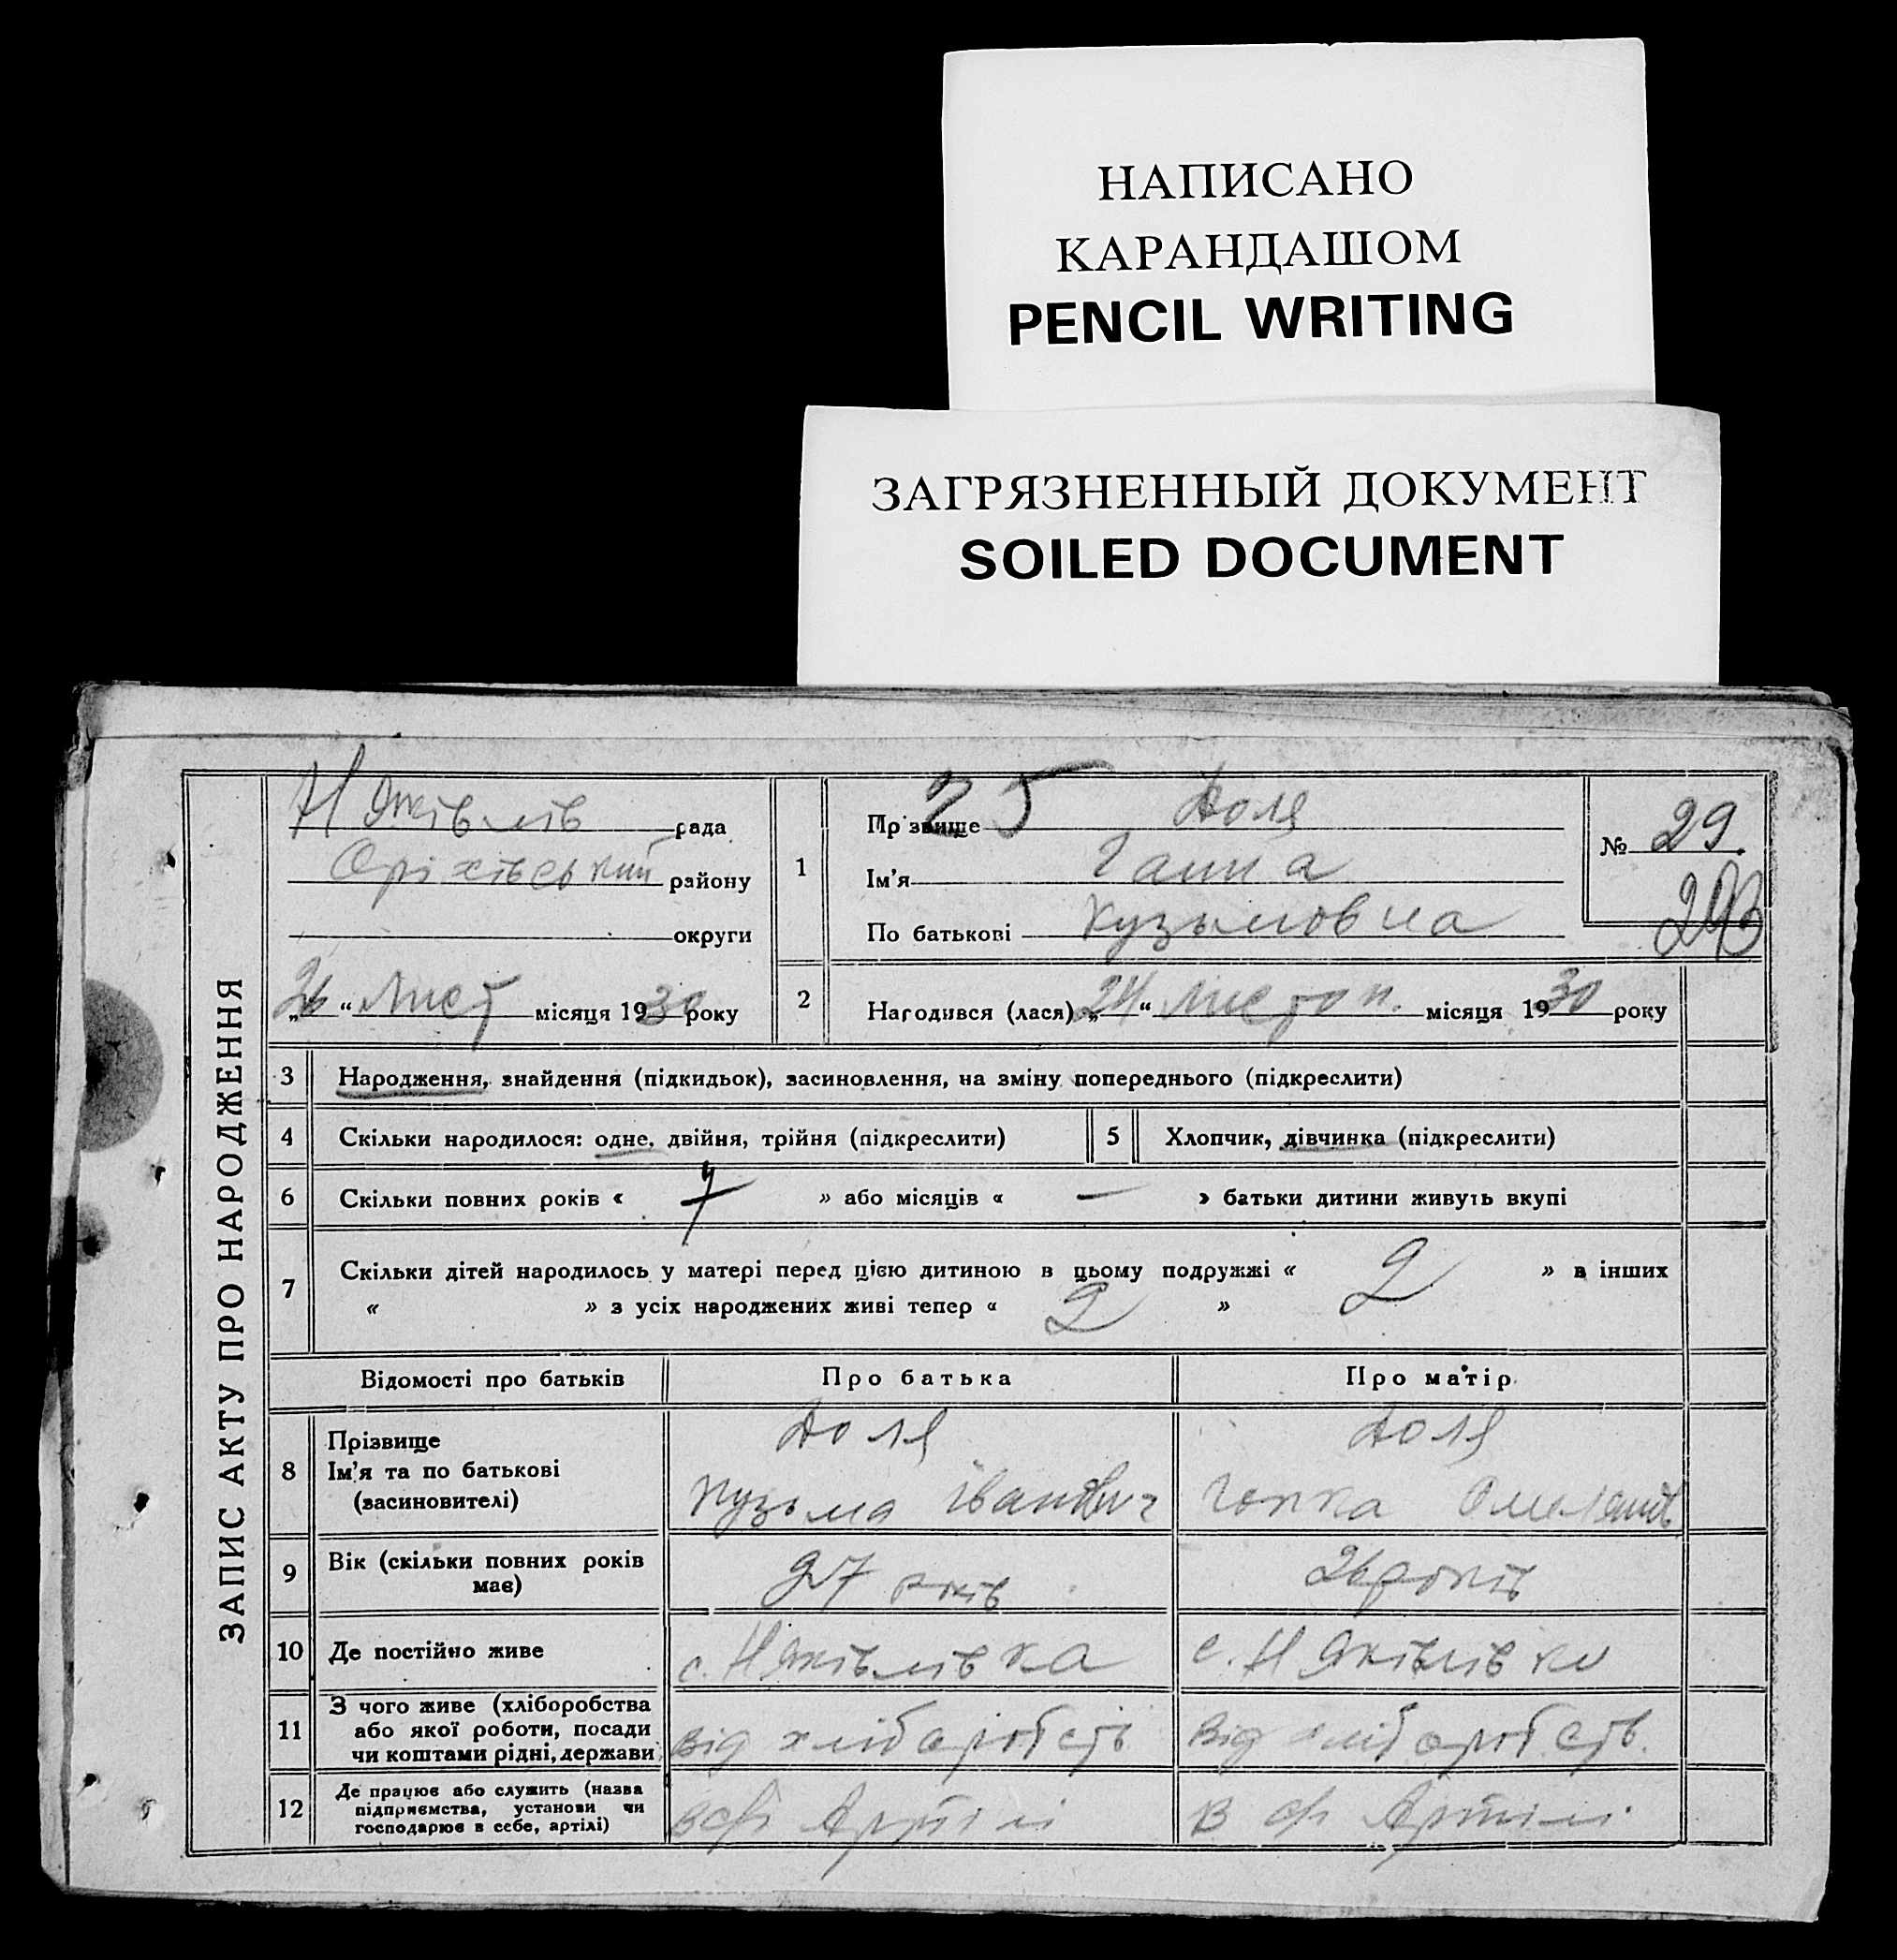 НАПИСАНО
КАРАНДАШОМ
PENCIL WRITING
ЗАГРЯЗНЕННЫЙ ДОКУМЕНТ
SOILED DOCUMENT
ЗАПИС АКТУ ПРО НАРОДЖЕННЯ
Н Яківлів рада
Оріхівський району
округи
„26“ Лист місяця 1930 року
25
1 Прізвище Доля
Ім'я Ганна
По батькові Кузьмовна
№ 29.
293
2 Народився (лася) „24“ листоп. місяця 1930 року
3 Народження, знайдення (підкидьок), засиновлення, на зміну попереднього (підкреслити)
4 Скільки народилося: одне, двійня, трійня (підкреслити) 5 Хлопчик, дівчинка (підкреслити)
6 Скільки повних років « » або місяців « — » батьки дитини живуть вкупі
7 Скільки дітей народилось у матері перед цією дитиною в цьому подружжі « 2 » в інших
« » з усіх народжених живі тепер « 2 »
Відомості про батьків Про батька Про матір
8 Прізвище
Ім'я та по батькові
(засиновителі)
Доля
Кузьма Іванович
Доля
9 Вік (скільки повних років
має)
27 років
26 років
10 Де постійно живе
с. Н Яківлівка
с. Н Яківлівка
11 З чого живе (хліборобства
або якої роботи, посади
чи коштами рідні, держави
від хліборобств
від хліборобств.
12 Де працює або служить (назва
підприємства, установи чи
господарює в себе, артілі)
в с/г Артілі
в с/г Артілі